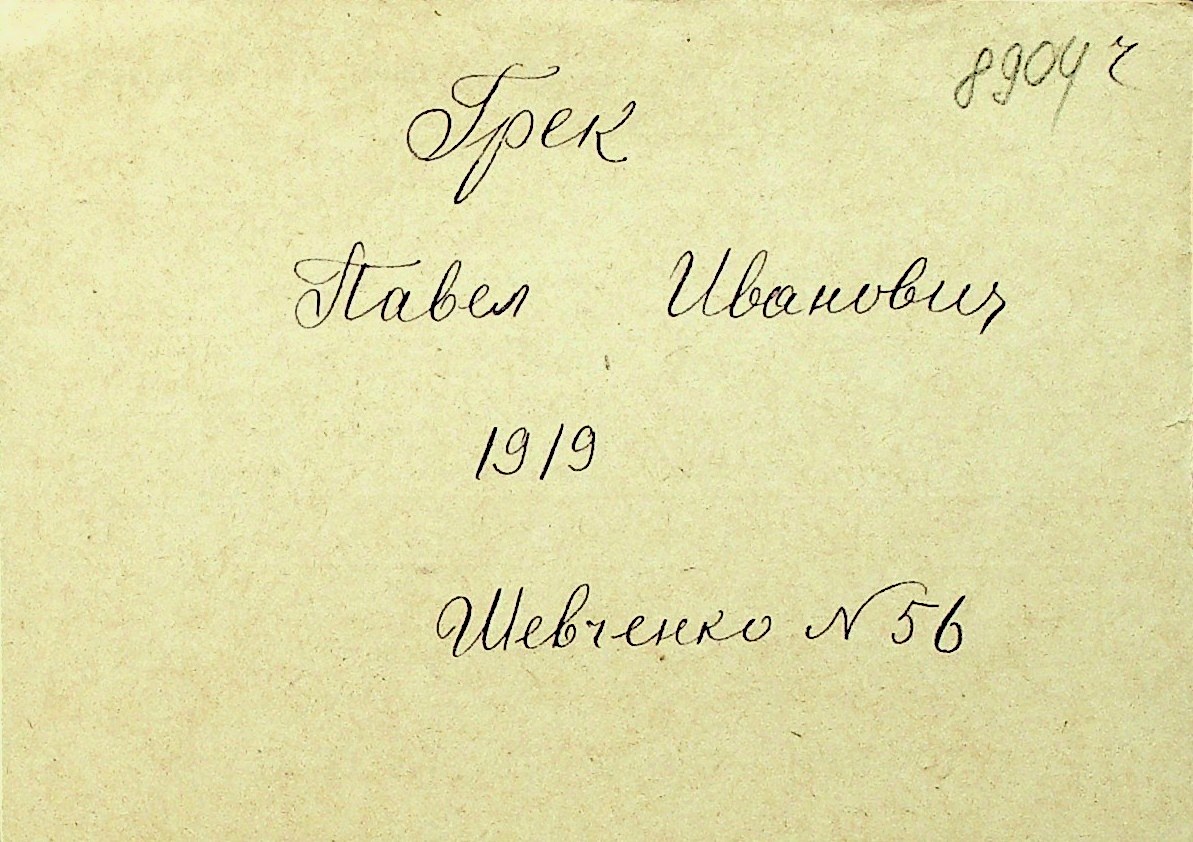 8904 ч
Грек
Павел Иванович
1919
Шевченко N 56